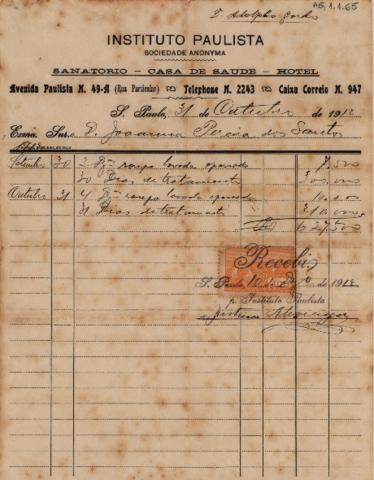 AG.1.1.65
Adolpho Gordo
INSTITUTO PAULISTA
SOCIEDADE ANONYMA
SANATORIO - CASA DE SAUDE - HOTEL
Avenida Paulista N. 49-A (Rua Particular) Telephone N. 2243 Caixa Correio N. 947
S. Paulo, 31 de Outubro de 1912
Exma. Snra. D. Joaquina Pereira dos Santos
Setembro 30 2 roupa lavada 7.500
30 Dias de tratamento 300.000
Outubro 31 4 roupa lavada
31 Dias de tratamento 310.000
Recebi
S. Paulo, de de 1912
p. Instituto Paulista